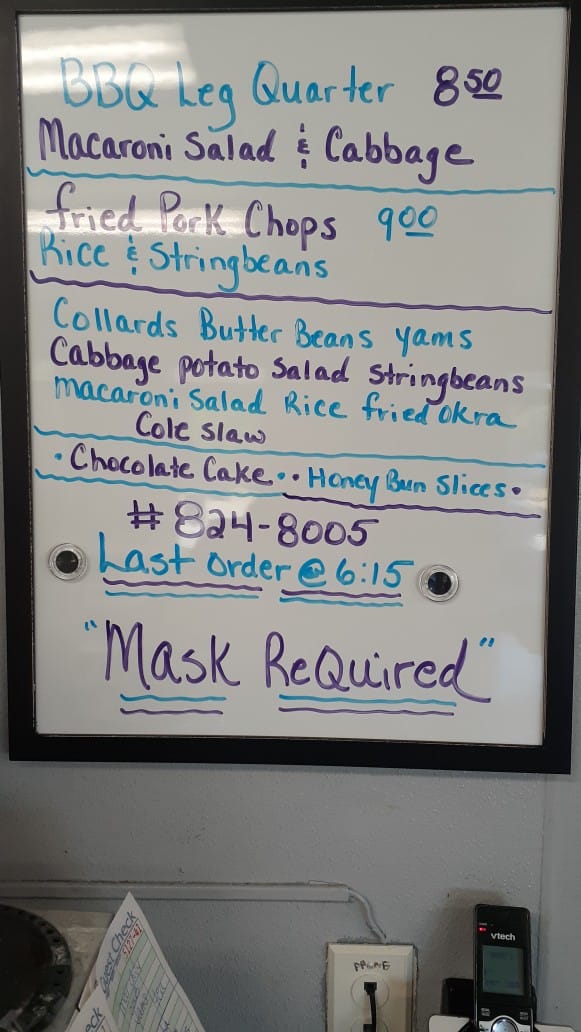 BBQ Leg Quarter 8 50
Macaroni Salad & Cabbage
fried Pork Chops 9 00
Rice & Stringbeans
Collards Butter Beans yams
Cabbage potato Salad Stringbeans
macaroni Salad Rice fried okra
Cole Slaw
• Chocolate Cake • • Honey Bun Slices •
# 824-8005
Last Order @ 6:15
"Mask ReQuired"
Guest Check
PHONE
vtech